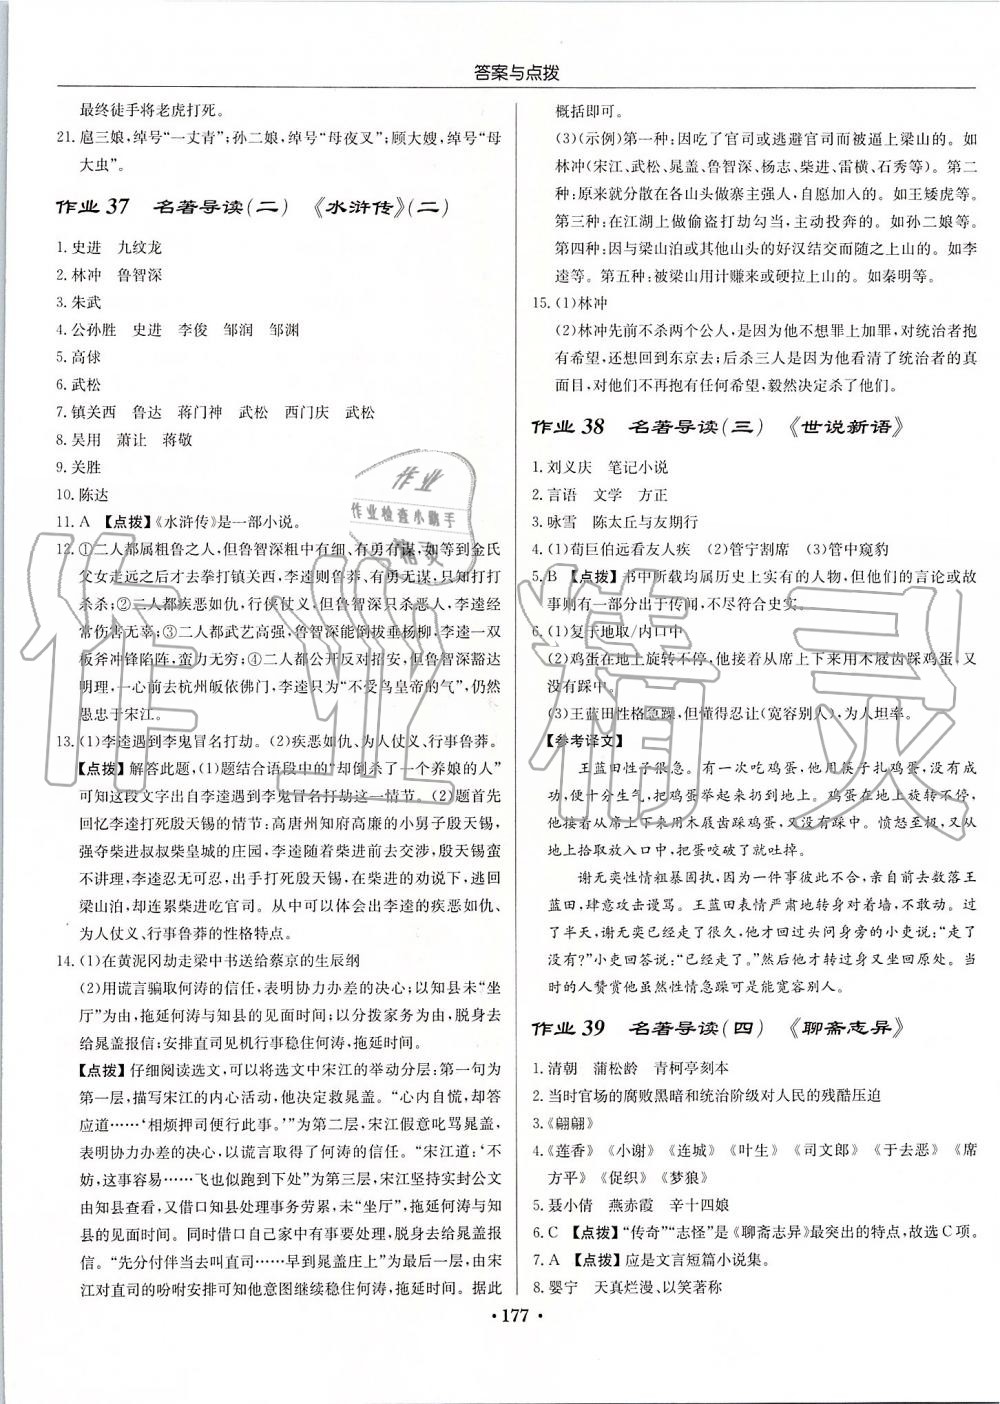 答案与点拨
最终徒手将老虎打死。
21. 扈三娘，绰号“一丈青”；孙二娘，绰号“母夜叉”；顾大嫂，绰号“母
大虫”。
作业 37　名著导读(二)　《水浒传》(二)
1. 史进　九纹龙
2. 林冲　鲁智深
3. 朱武
4. 公孙胜　史进　李俊　邹润　邹渊
5. 高俅
6. 武松
7. 镇关西　鲁达　蒋门神　武松　西门庆　武松
8. 吴用　萧让　蒋敬
9. 关胜
10. 陈达
11. A　【点拨】《水浒传》是一部小说。
12. ①二人都属粗鲁之人，但鲁智深粗中有细，有勇有谋，如等到金氏
父女走远之后才去拳打镇关西，李逵则鲁莽，有勇无谋，只知打打
杀杀；②二人都疾恶如仇，行侠仗义，但鲁智深只杀恶人，李逵经
常伤害无辜；③二人都武艺高强，鲁智深能倒拔垂杨柳，李逵一双
板斧冲锋陷阵，蛮力无穷；④二人都公开反对招安，但鲁智深豁达
明理，一心前去杭州皈依佛门，李逵只为“不受鸟皇帝的气”，仍然
愚忠于宋江。
13. (1)李逵遇到李鬼冒名打劫。(2)疾恶如仇、为人仗义、行事鲁莽。
【点拨】解答此题，(1)题结合语段中的“却倒杀了一个养娘的人”
可知这段文字出自李逵遇到李鬼冒名打劫这一情节。(2)题首先
回忆李逵打死殷天锡的情节：高唐州知府高廉的小舅子殷天锡，
强夺柴进叔叔柴皇城的庄园，李逵随柴进前去交涉，殷天锡蛮
不讲理，李逵忍无可忍，出手打死殷天锡，在柴进的劝说下，逃回
梁山泊，却连累柴进吃官司。从中可以体会出李逵的疾恶如仇、
为人仗义、行事鲁莽的性格特点。
14. (1)在黄泥冈劫走梁中书送给蔡京的生辰纲
(2)用谎言骗取何涛的信任，表明协力办差的决心；以知县未“坐
厅”为由，拖延何涛与知县的见面时间；以分拨家务为由，脱身去
给晁盖报信；安排直司见机行事稳住何涛，拖延时间。
【点拨】仔细阅读选文，可以将选文中宋江的举动分层：第一句为
第一层，描写宋江的内心活动，他决定救晁盖。“心内自慌，却答
应道……‘相烦押司便行此事。’”为第二层，宋江假意叱骂晁盖，
表明协力办差的决心，以谎言取得了何涛的信任。“宋江道：‘不
妨，这事容易……’飞也似跑到下处”为第三层，宋江将实封公文
由知县查看，又以知县处理事务劳累，未“坐厅”为由，拖延何涛与
知县的见面时间。同时借口自己家中有事要处理，脱身去给晁盖报
信。“先分付伴当去叫直司……早到晁盖庄上”为最后一层，由宋
江对直司的吩咐安排可知他意图继续稳住何涛，拖延时间。据此
概括即可。
(3)(示例)第一种：因吃了官司或逃避官司而被逼上梁山的。如
林冲(宋江、武松、晁盖、鲁智深、杨志、柴进、雷横、石秀等)。第二
种：原来就分散在各山头做寨主强人，自愿加入的。如王矮虎等。
第三种：在江湖上做偷盗打劫勾当，主动投奔的。如孙二娘等。
第四种：因与梁山泊或其他山头的好汉结交而随之上山的。如李
逵等。第五种：被梁山用计赚来或硬拉上山的。如秦明等。
15. (1)林冲
(2)林冲先前不杀两个公人，是因为他不想罪上加罪，对统治者抱
有希望，还想回到东京去；后杀三人是因为他看清了统治者的真
面目，对他们不再抱有任何希望，毅然决定杀了他们。
作业 38　名著导读(三)　《世说新语》
1. 刘义庆　笔记小说
2. 言语　文学　方正
3. 咏雪　陈太丘与友期行
4. (1)荀巨伯远看友人疾　(2)管宁割席　(3)管中窥豹
5. B　【点拨】书中所载均属历史上实有的人物，但他们的言论或故
事则有一部分出于传闻，不尽符合史实。
6. (1)复于地取/内口中
(2)鸡蛋在地上旋转不停，他接着从席上下来用木屐齿踩鸡蛋，又
没有踩中。
(3)王蓝田性格急躁，但懂得忍让(宽容别人)，为人坦率。
【参考译文】
王蓝田性子很急。有一次吃鸡蛋，他用筷子扎鸡蛋，没有成
功，便十分生气，把鸡蛋举起来扔到地上。鸡蛋在地上旋转不停，
他接着从席上下来用木屐齿踩鸡蛋，又没有踩中。愤怒至极，又从
地上拾取放入口中，把蛋咬破了就吐掉。
谢无奕性情粗暴固执，因为一件事彼此不合，亲自前去数落王
蓝田，肆意攻击谩骂。王蓝田表情严肃地转身对着墙，不敢动。过
了半天，谢无奕已经走了很久，他才回过头问身旁的小吏说：“走了
没有?”小吏回答说：“已经走了。”然后才又坐回原处。当
时的人赞赏他虽然性情急躁可是能宽容别人。
作业 39　名著导读(四)　《聊斋志异》
1. 清朝　蒲松龄　青柯亭刻本
2. 当时官场的腐败黑暗和统治阶级对人民的残酷压迫
3. 《翩翩》
4. 《莲香》《小谢》《连城》《叶生》《司文郎》《于去恶》《席
方平》《促织》《梦狼》
5. 聂小倩　燕赤霞　辛十四娘
6. C　【点拨】“传奇”“志怪”是《聊斋志异》最突出的特点，故选C项。
7. A　【点拨】应是文言短篇小说集。
8. 婴宁　天真烂漫、以笑著称
• 177 •
作业
作业检查小助手
精灵
作业精灵